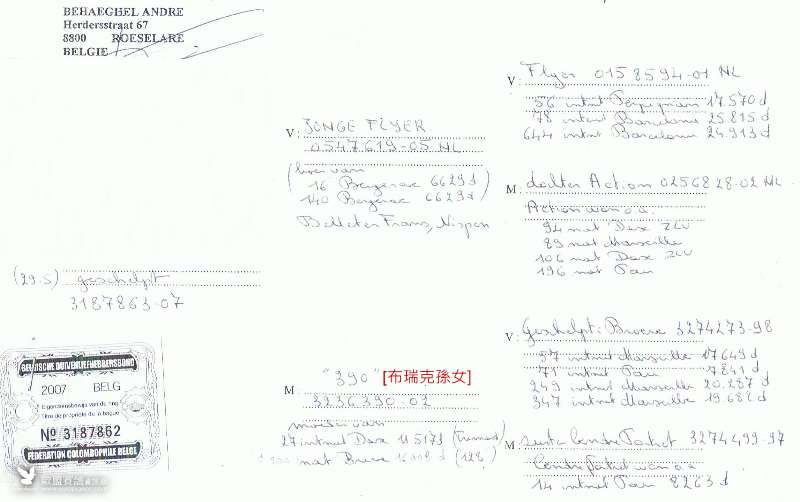 BEHAEGHEL ANDRE
Herdersstraat 67
8800 ROESELARE
BELGIE
(29.S) geschelpt
3187863-07
BELGISCHE DUIVENLIEFHEBBERSBOND
2007 BELG
Eigendomsbewijs van de ring
Titre de propriété de la bague
No 3187862
FEDERATION COLOMBOPHILE BELGE
V: JONGE FLYER
0547619-05 NL
16 Bergerac 6629 d
140 Bergerac 6629 d
Belleter Frans, Nispen
M "390" [布瑞克孫女]
3236390-02
moeder van
27 intnat Dax 11 5173
nat Brive (128)
V: Flyer 0158594-01 NL
56 intnat Perpignan 17.570 d
78 intnat Barcelona 25815 d
644 intnat Barcelona 24.913 d
M: dochter Action 0256828-02 NL
Action won o.a.
94 nat Dax ZLU
89 nat Marseille
106 nat Dax ZLU
196 nat Pau
V: Geschelpt: Broere 3274273-98
57 intnat Marseille 17649 d
71 intnat Pau 7841 d
249 intnat Marseille 20.287 d
347 intnat Marseille 19682 d
M: 3274499-97
14 intnat Pau 8263 d